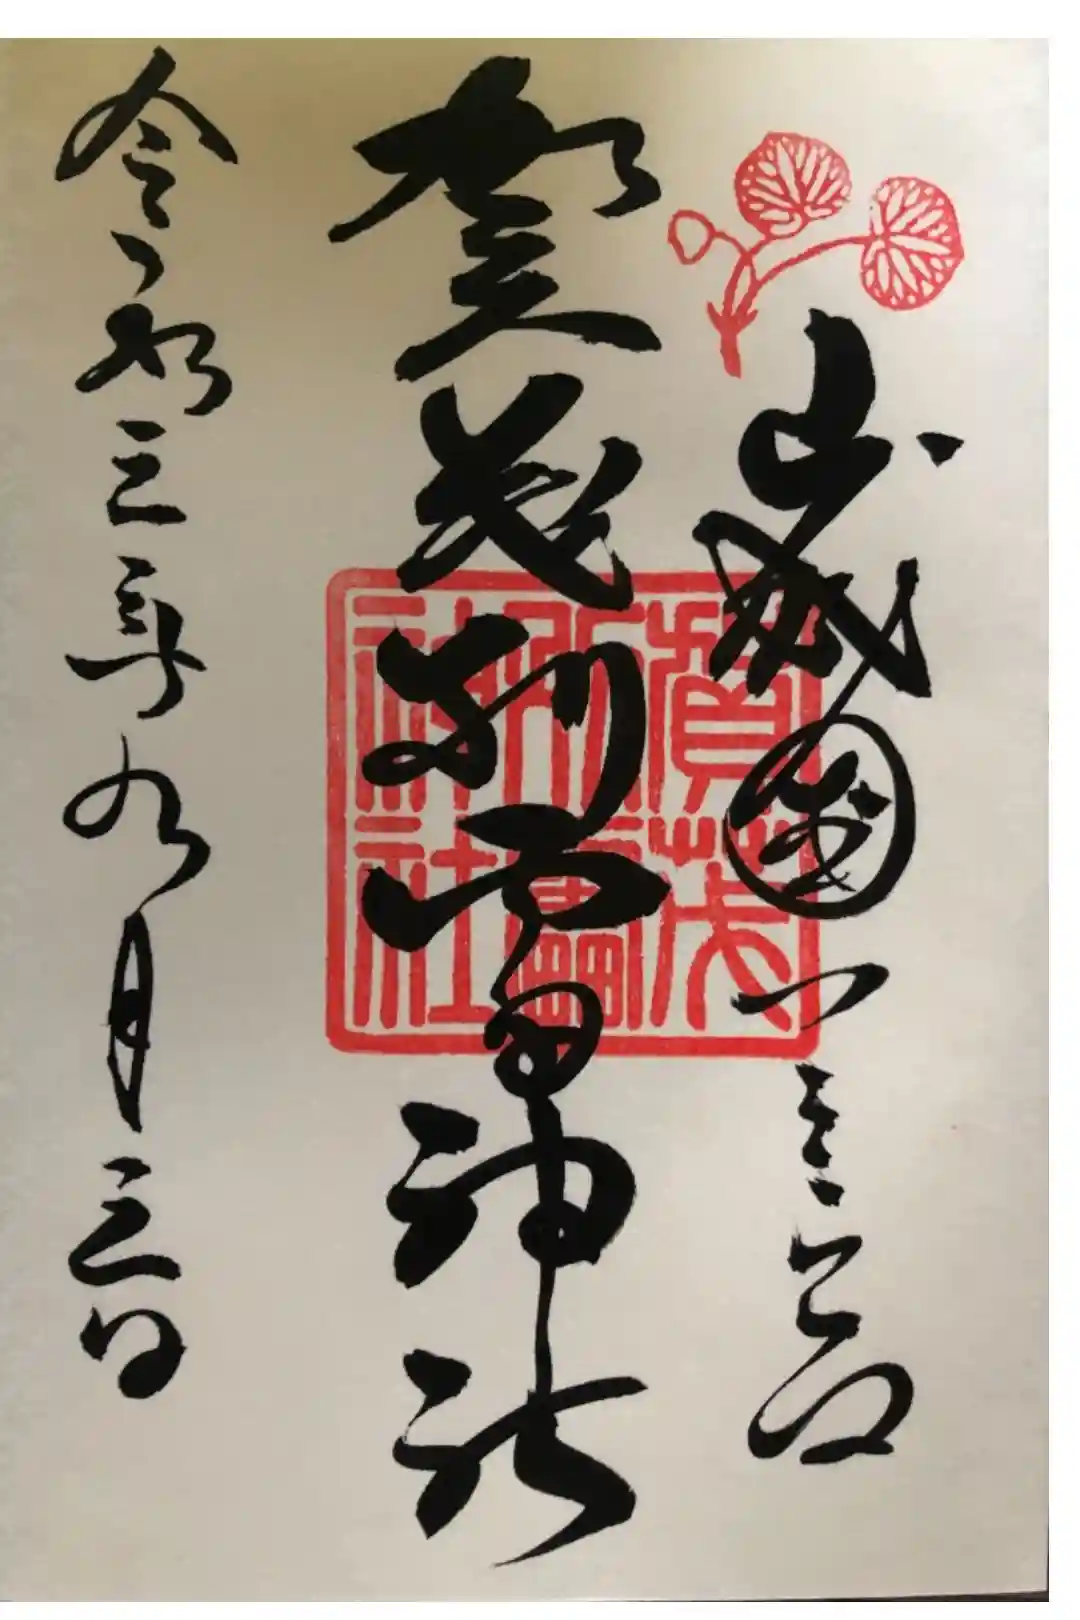 山城國一之宮
賀茂別雷神社
令和三年九月三日
賀茂
別雷
社